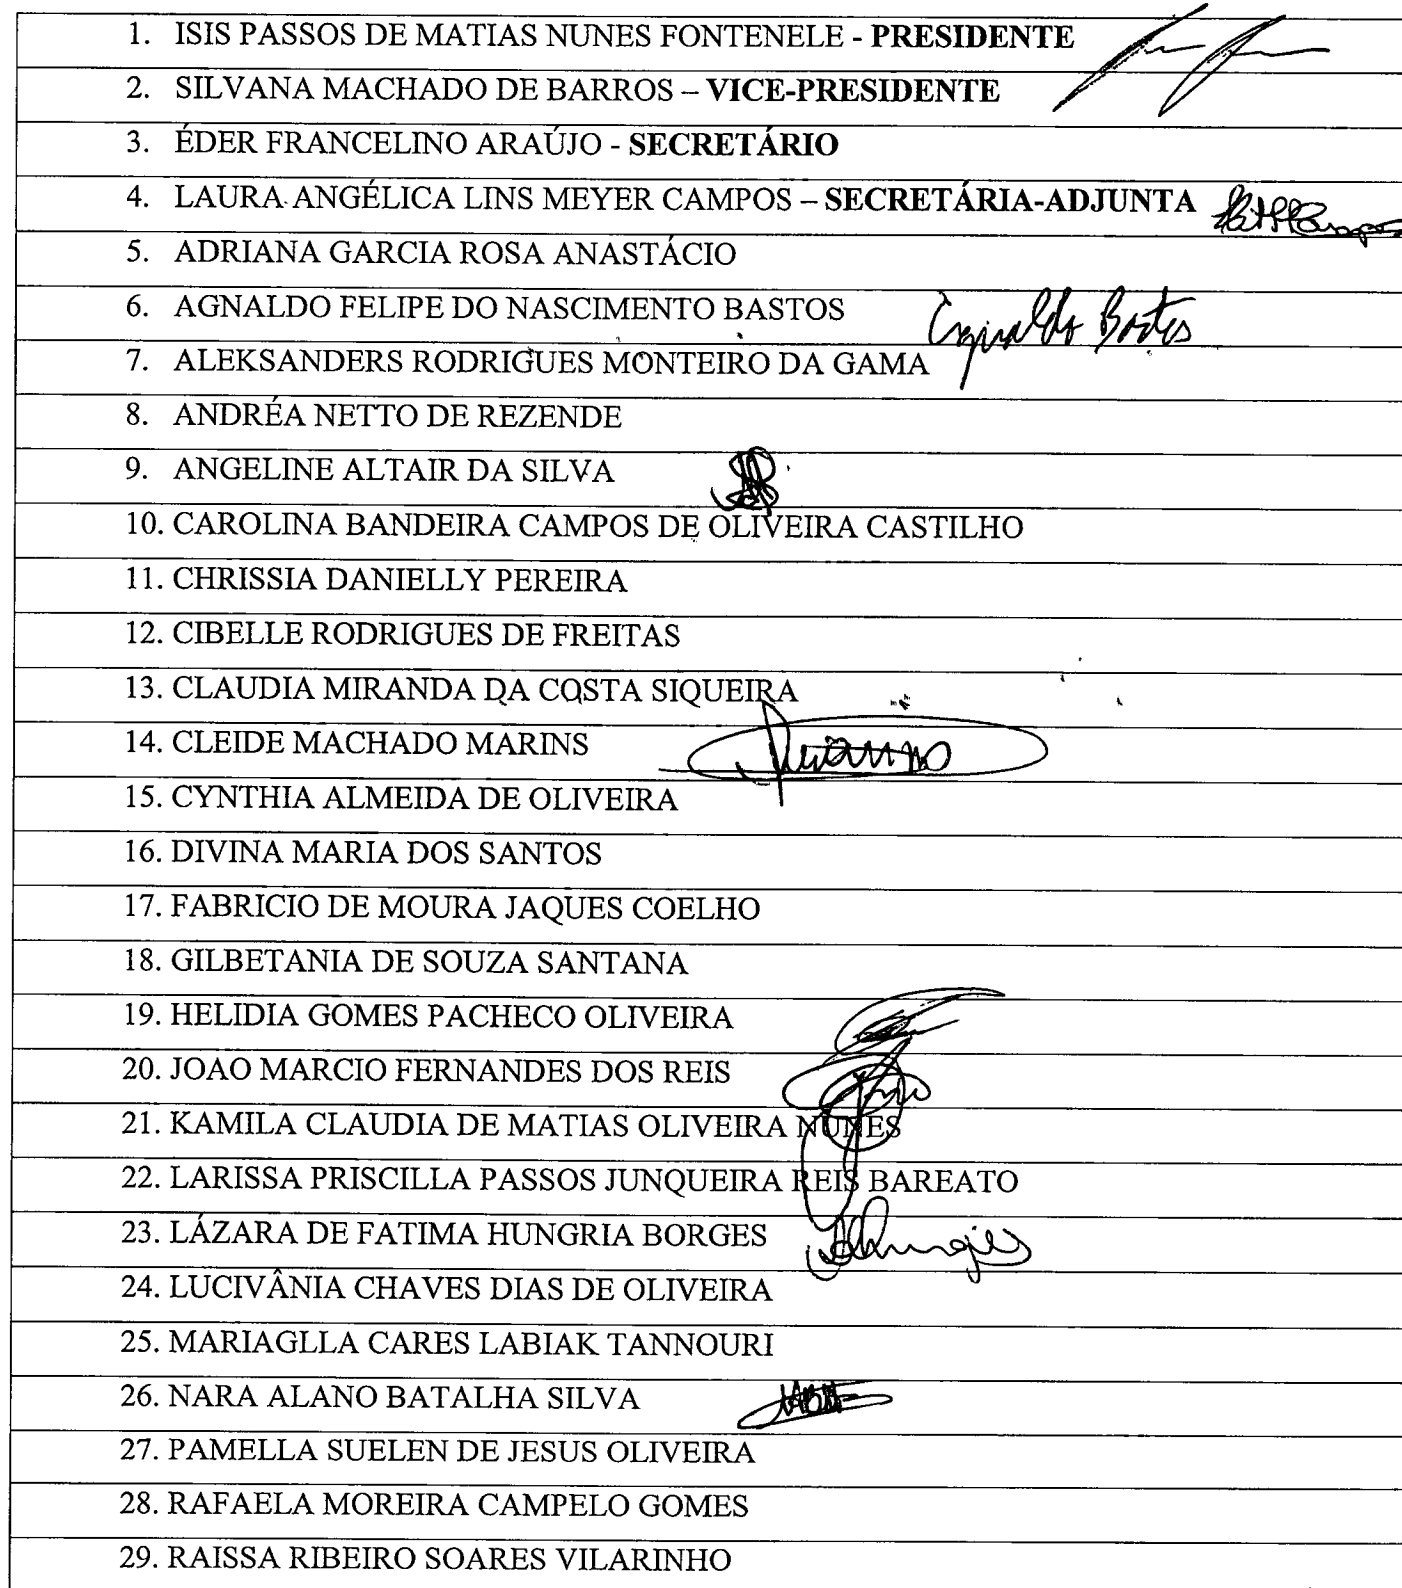 1. ISIS PASSOS DE MATIAS NUNES FONTENELE - PRESIDENTE
2. SILVANA MACHADO DE BARROS – VICE-PRESIDENTE
3. ÉDER FRANCELINO ARAÚJO - SECRETÁRIO
4. LAURA ANGÉLICA LINS MEYER CAMPOS – SECRETÁRIA-ADJUNTA
5. ADRIANA GARCIA ROSA ANASTÁCIO
6. AGNALDO FELIPE DO NASCIMENTO BASTOS Agnaldo Bastos
7. ALEKSANDERS RODRIGUES MONTEIRO DA GAMA
8. ANDRÉA NETTO DE REZENDE
9. ANGELINE ALTAIR DA SILVA
10. CAROLINA BANDEIRA CAMPOS DE OLIVEIRA CASTILHO
11. CHRISSIA DANIELLY PEREIRA
12. CIBELLE RODRIGUES DE FREITAS
13. CLAUDIA MIRANDA DA COSTA SIQUEIRA
14. CLEIDE MACHADO MARINS
15. CYNTHIA ALMEIDA DE OLIVEIRA
16. DIVINA MARIA DOS SANTOS
17. FABRICIO DE MOURA JAQUES COELHO
18. GILBETANIA DE SOUZA SANTANA
19. HELIDIA GOMES PACHECO OLIVEIRA
20. JOAO MARCIO FERNANDES DOS REIS
21. KAMILA CLAUDIA DE MATIAS OLIVEIRA NUNES
22. LARISSA PRISCILLA PASSOS JUNQUEIRA REIS BAREATO
23. LÁZARA DE FATIMA HUNGRIA BORGES
24. LUCIVÂNIA CHAVES DIAS DE OLIVEIRA
25. MARIAGLLA CARES LABIAK TANNOURI
26. NARA ALANO BATALHA SILVA
27. PAMELLA SUELEN DE JESUS OLIVEIRA
28. RAFAELA MOREIRA CAMPELO GOMES
29. RAISSA RIBEIRO SOARES VILARINHO